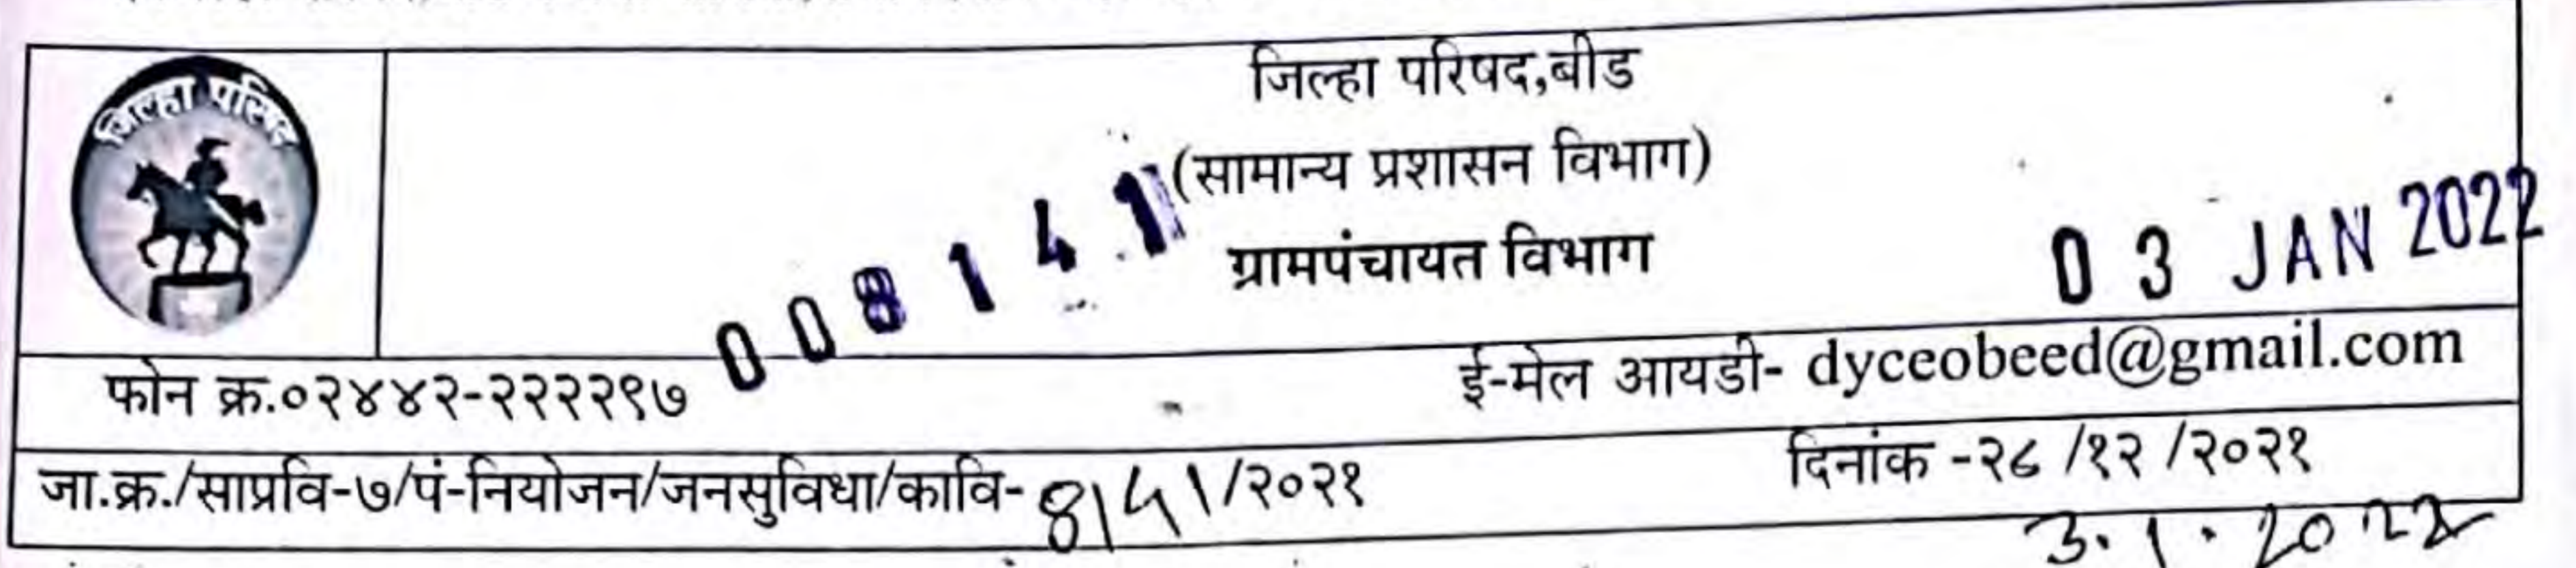 जिल्हा परिषद
जिल्हा परिषद,बीड
(सामान्य प्रशासन विभाग)
ग्रामपंचायत विभाग
008141
03 JAN 2022
फोन क्र.०२४४२-२२२२९७
ई-मेल आयडी- dyceobeed@gmail.com
जा.क्र./साप्रवि-७/पं-नियोजन/जनसुविधा/कावि- 8141/२०२१
दिनांक -२८ /१२ /२०२१
3.1.2022